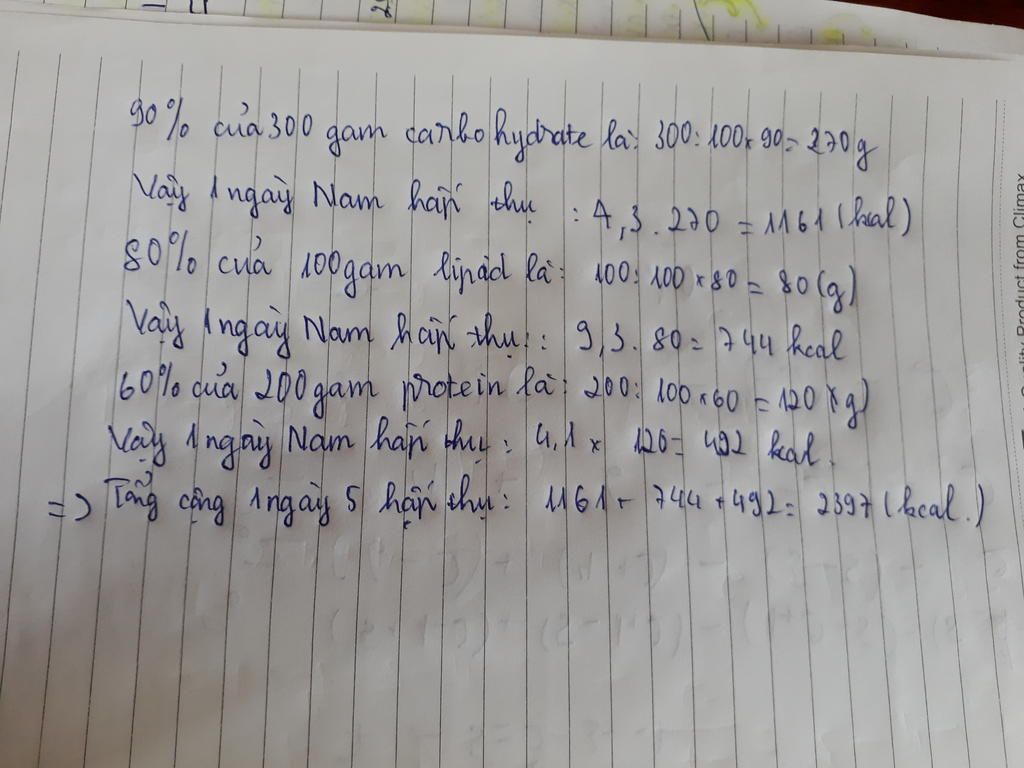 90% của 300 gam carbohydrate là: 300:100×90=270g
Vậy 1 ngày Nam hấp thụ : 4,3.270=1161 (kcal)
80% của 100gam lipid là: 100:100×80=80(g)
Vậy 1 ngày Nam hấp thụ:: 9,3.80=744 kcal
60% của 200gam protein là: 200:100×60=120(g)
Vậy 1 ngày Nam hấp thụ: 4,1 × 120= 492 kcal.
=> Tổng cộng 1 ngày 5 hấp thụ: 1161+744+492=2397 (kcal.)
Product from Climax